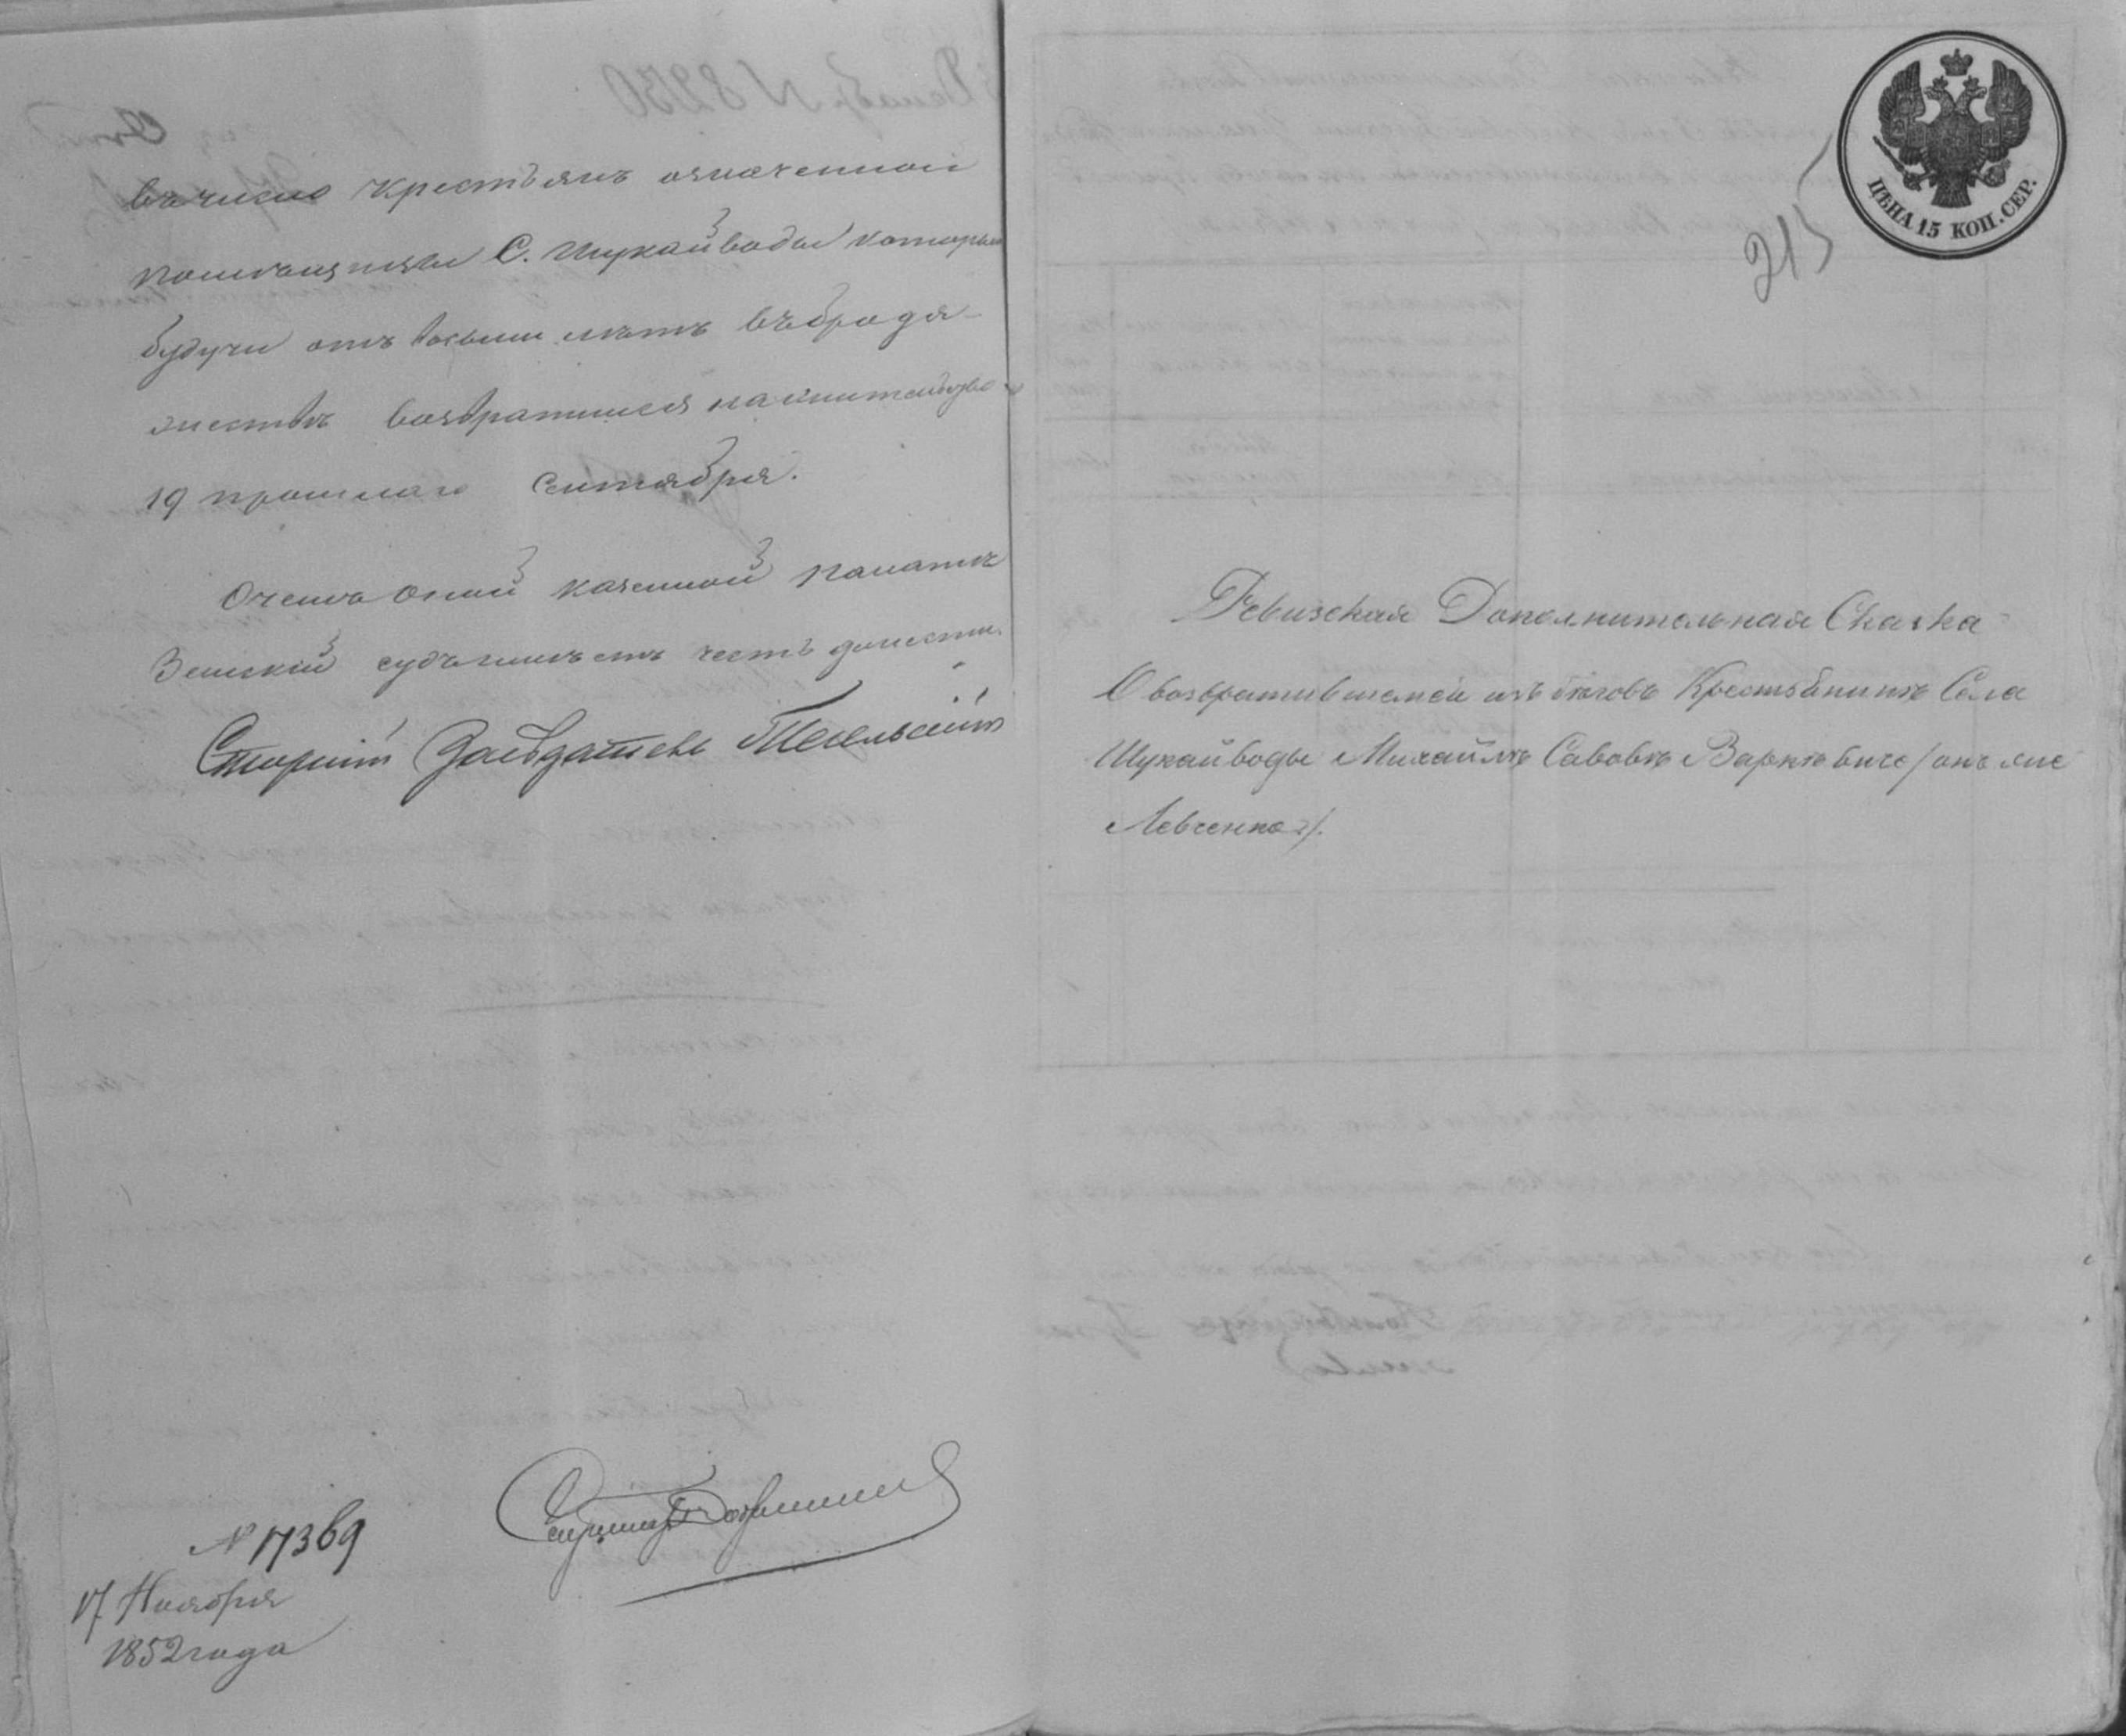 въ число крестьянъ означенной
помѣщицы С. Шукайводы который
будучи отъ восьми лѣтъ въ бродя-
жествѣ возвратился на жительство
19 прошлаго Сентября.
О чемъ оной казенной палатѣ
Земскій судъ имѣетъ честь донести.
Старшій Засѣдатель
№ 17369
17 Ноября
1852 года
ЦѢНА 15 КОП. СЕР.
215
Ревизская Дополнительная Сказка
О возвратившемся изъ бѣговъ Крестьянинѣ Села
Шукайводы Михайлѣ Савовѣ Варкѣвиче /онъ же
Левченко/.